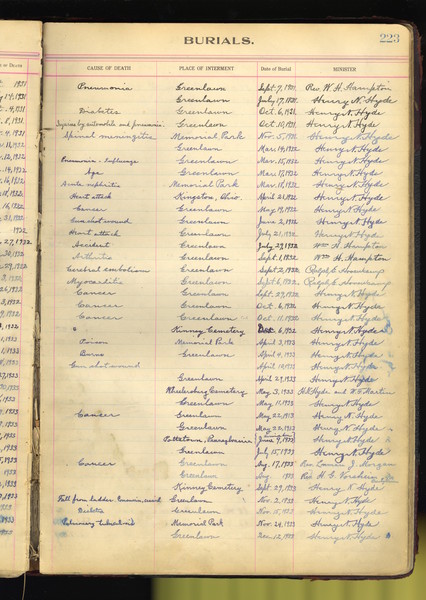 BURIALS.
223
CAUSE OF DEATH PLACE OF INTERMENT Date of Burial MINISTER
Pneumonia Greenlawn Sept. 7, 1931 Rev. W. H. Hampton
Greenlawn July 17, 1931 Henry N. Hyde
Diabetes Greenlawn Oct. 6, 1931 Henry N. Hyde
Injuries by automobile and pneumonia Greenlawn Oct. 10, 1931 Henry N. Hyde
Spinal meningitis Memorial Park Nov. 5, 1931 Henry N. Hyde
Greenlawn Mar. 14, 1932 Henry N. Hyde
Pneumonia - Influenza Greenlawn Mar. 15, 1932 Henry N. Hyde
Age Greenlawn Mar. 17, 1932 Henry N. Hyde
Acute nephritis Memorial Park Mar. 18, 1932 Henry N. Hyde
Heart attack Kingston, Ohio. April 21, 1932 Henry N. Hyde
Cancer Greenlawn May 19, 1932 Henry N. Hyde
Gun shot wound Greenlawn June 2, 1932 Henry N. Hyde
Heart attack Greenlawn July 21, 1932 Henry N. Hyde
Accident Greenlawn July 27, 1932 Wm H. Hampton
Arthritis Greenlawn Sept. 1, 1932 Wm H. Hampton
Cerebral embolism Greenlawn Sept. 2, 1932 Ralph
Myocarditis Greenlawn Sept. 6, 1932 Ralph
Cancer Greenlawn Sept. 27, 1932 Henry N. Hyde
Cancer Greenlawn Oct. 6, 1932 Henry N. Hyde
Cancer Greenlawn Oct. 11, 1932 Henry N. Hyde
Kinney Cemetery 6, 1932 Henry N. Hyde
Poison Memorial Park April 3, 1933 Henry N. Hyde
Burns Greenlawn April 1933 Henry N. Hyde
Gun shot wound April 1933 Henry N. Hyde
Greenlawn April 27, 1933 Henry N. Hyde
Wheelersburg Cemetery May 3, 1933 and
Greenlawn May 11, 1933 Henry N. Hyde
Cancer Greenlawn May 22, 1933 Henry N. Hyde
Greenlawn May 22, 1933 Henry N. Hyde
Pottstown, Pennsylvania June 9, 1933 Henry N. Hyde
Greenlawn July 15, 1933 Henry N. Hyde
Cancer Greenlawn Aug. 17, 1933 Rev. J. Morgan
Greenlawn Aug. 1933 Rev. H. G.
Kinney Cemetery Sept. 29, 1933 Henry N. Hyde
Fall from ladder. Greenlawn Nov. 2, 1933 Henry N. Hyde
Diabetes Greenlawn Nov. 15, 1933 Henry N. Hyde
Pulmonary tuberculosis Memorial Park Nov. 24, 1933 Henry N. Hyde
Greenlawn Dec. 12, 1933 Henry N. Hyde